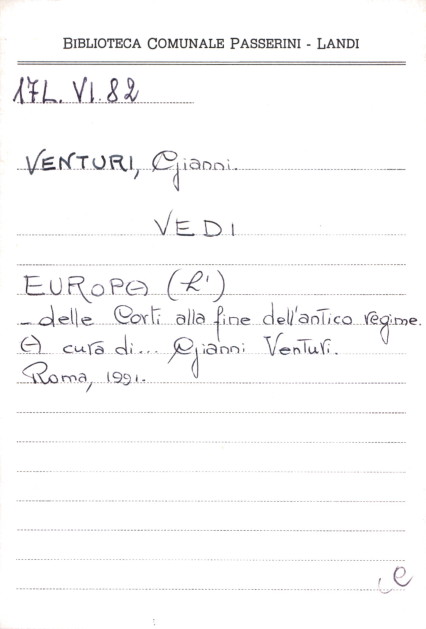 BIBLIOTECA COMUNALE PASSERINI - LANDI
17L. VI. 82
VENTURI, Gianni.
VEDI
EUROPA (L')
- delle Corti alla fine dell'antico regime.
A cura di... Gianni Venturi.
Roma, 1991.
e